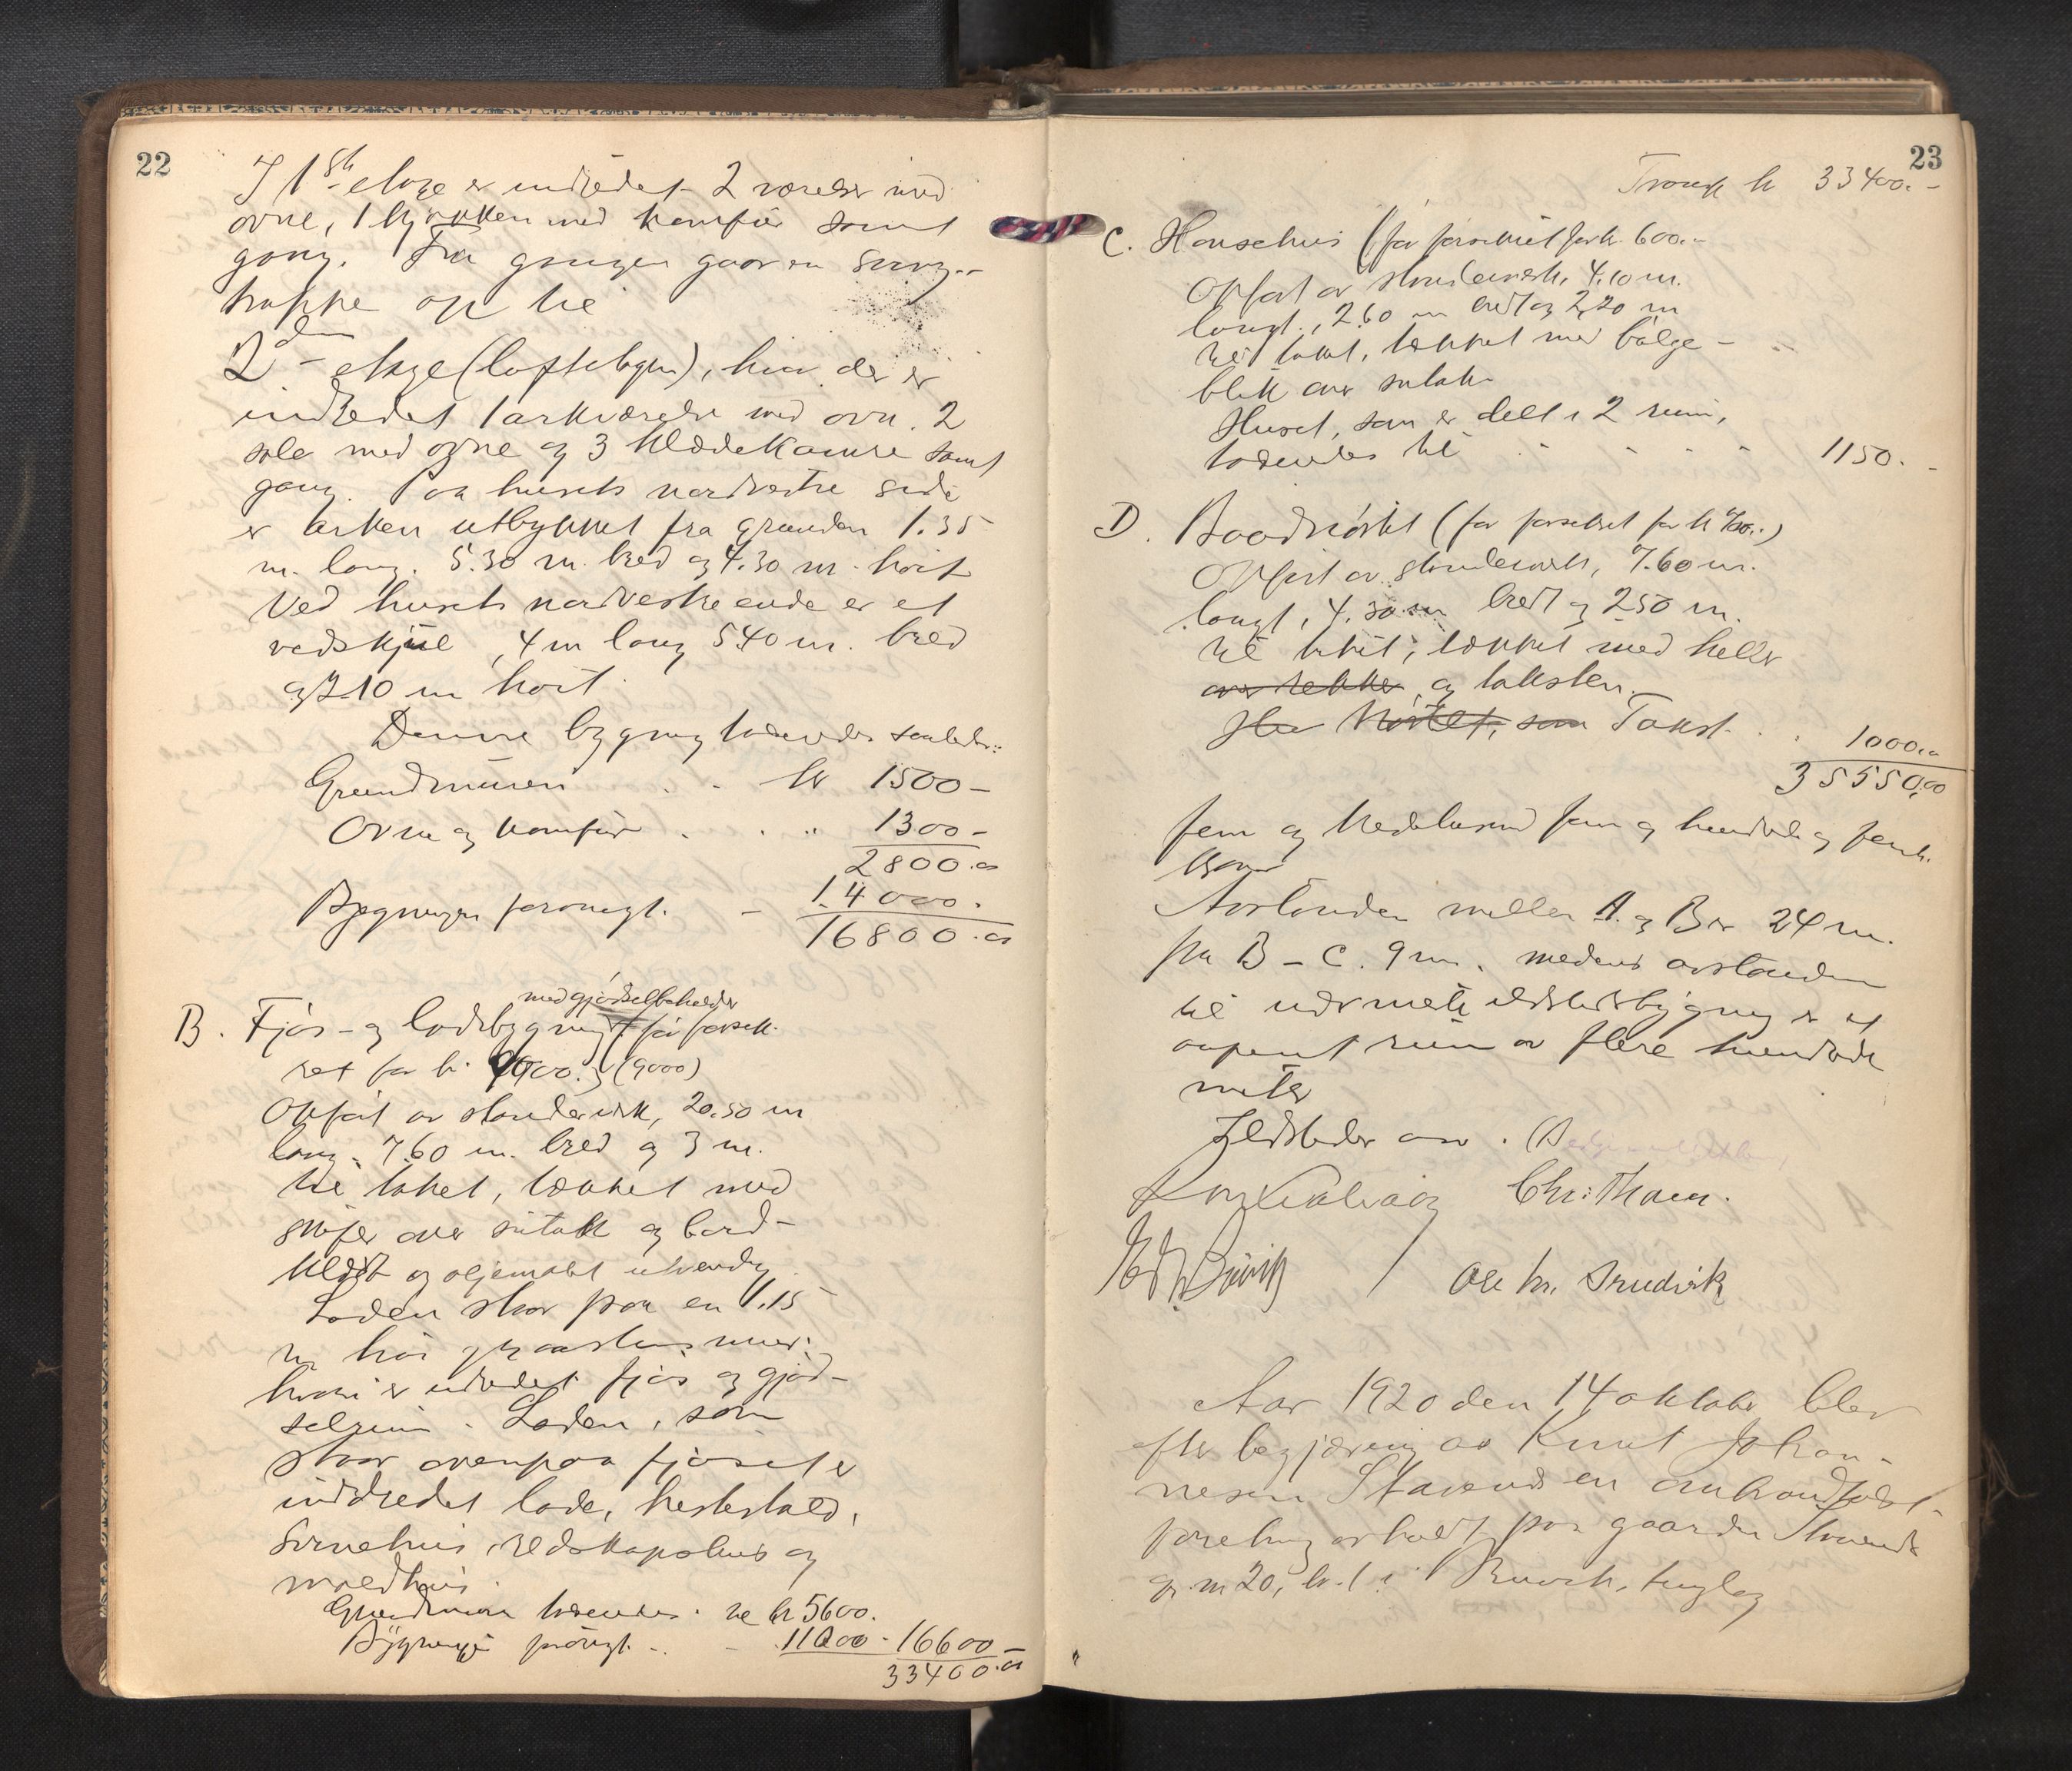 22
I 1ste etage er indredet 2 værelser med
ovne, 1 kjøkken med komfür samt
gang. Fra gangen gaar en sving-
trappe op til
2den etage (loftsetagen), hvor der er
indredet 1 arkværelse med ovn. 2
sale med ovne og 3 klædekamre samt
gang. Paa husets nordvestre side
er arken utbykket fra grunden 1.35
m. lang. 5.30 m. bred og 4.30 m. høit
Ved husets nordvestre ende er et
vedskjul, 4 m lang 5.40 m. bred
og 2.10 m høit.
Denne bygning taxeredes saaledes:
Grundmuren . . kr 1500 -
Ovne og komfür . . " 1300 -
2800.00
Bygningen forøvrigt. - 14000.
16800.00
med gjødselbeholder
B. Fjøs- og ladebygning (før forsik-
ret for kr. 9000.) (9000)
Opført av stenderverk, 20.50 m
lang, 7.60 m. bred og 3 m.
til taket, tækket med
skifer over sutak og bord-
klædt og oljemalet utvendig.
Laden staar paa en 1.15
m høi graastensmur,
hvori er indredet fjøs og gjød-
selrum. Laden, som
staar ovenpaa fjøset er
inddredet lade, hestestald,
redskapshus og
Grundmuren taxeredes til kr 5600.
Bygningen forøvrigt - 11000 - 16600 -
33400.00
23
Transp. kr 33400.-
C. Hønsehus (før forsikret for kr. 600.-
Opført av stenderverk, 4.10 m.
langt, 2.60 m bredt og 2,20 m
til taket, tækket med bølge-
blik over sutak.
Huset, som er delt i 2 rum,
taxeredes til . . . . . 1150. -
D. Baadnøstet (før forsikret for kr )
Opført av stenderverk, 7.60 m.
langt, 4.30 m bredt og 2.50 m.
til taket, tækket med heller
over rekker, og taksten.
Nøstet, som Takst . . 1000.00
35550.00
fem og tredetusend fem hundrede og femti
kroner
Avstanden mellem A. og B er 24 m.
fra B - C. 9 m. medens avstanden
til nærmeste ildstedsbygning er et
aapent rum av flere hundrede
meter
Ildsteder
Chr: Thoen.
Ole Kr.
Aar 1920 den 14 oktober blev
efter begjæring av Knut Johan-
nesen Stavend en omhandlet
forretning avholdt paa gaarden
gr. nr. 20, br. 1 i tinglag